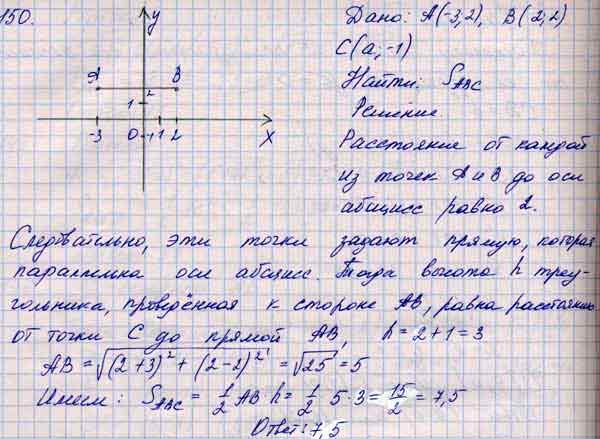 150.
y
A B
2
1
-3 0 -1 1 2 x
Дано: A(-3;2), B(2;2)
C(a;-1)
Найти: S_ABC
Решение.
Расстояние от каждой
из точек A и B до оси
абсцисс равно 2.
Следовательно, эти точки задают прямую, которая
параллельна оси абсцисс. Тогда высота h треу-
гольника, проведённая к стороне AB, равна расстоянию
от точки C до прямой AB, h = 2 + 1 = 3
AB = √((2+3)² + (2-2)²) = √25 = 5
Имеем: S_ABC = 1/2 AB·h = 1/2 5·3 = 15/2 = 7,5
Ответ: 7,5